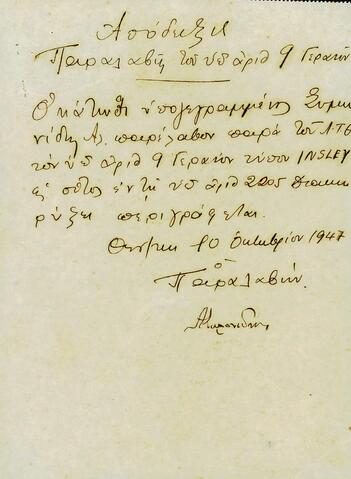 Απόδειξις
Παραλαβής του υπ αριθ 9 Γερανού
Ο κάτωθι υπογεγραμμένος Συμεω
νίδης Α. παρέλαβον παρά του ΛΤΘ
τον υπ αριθ 9 Γερανόν τύπου INSLEY
ως ούτος εν τη υπ αριθ 2205 διακη
ρύξει περιγράφεται.
10 Οκτωβρίου 1947
Ο
Παραλαβών